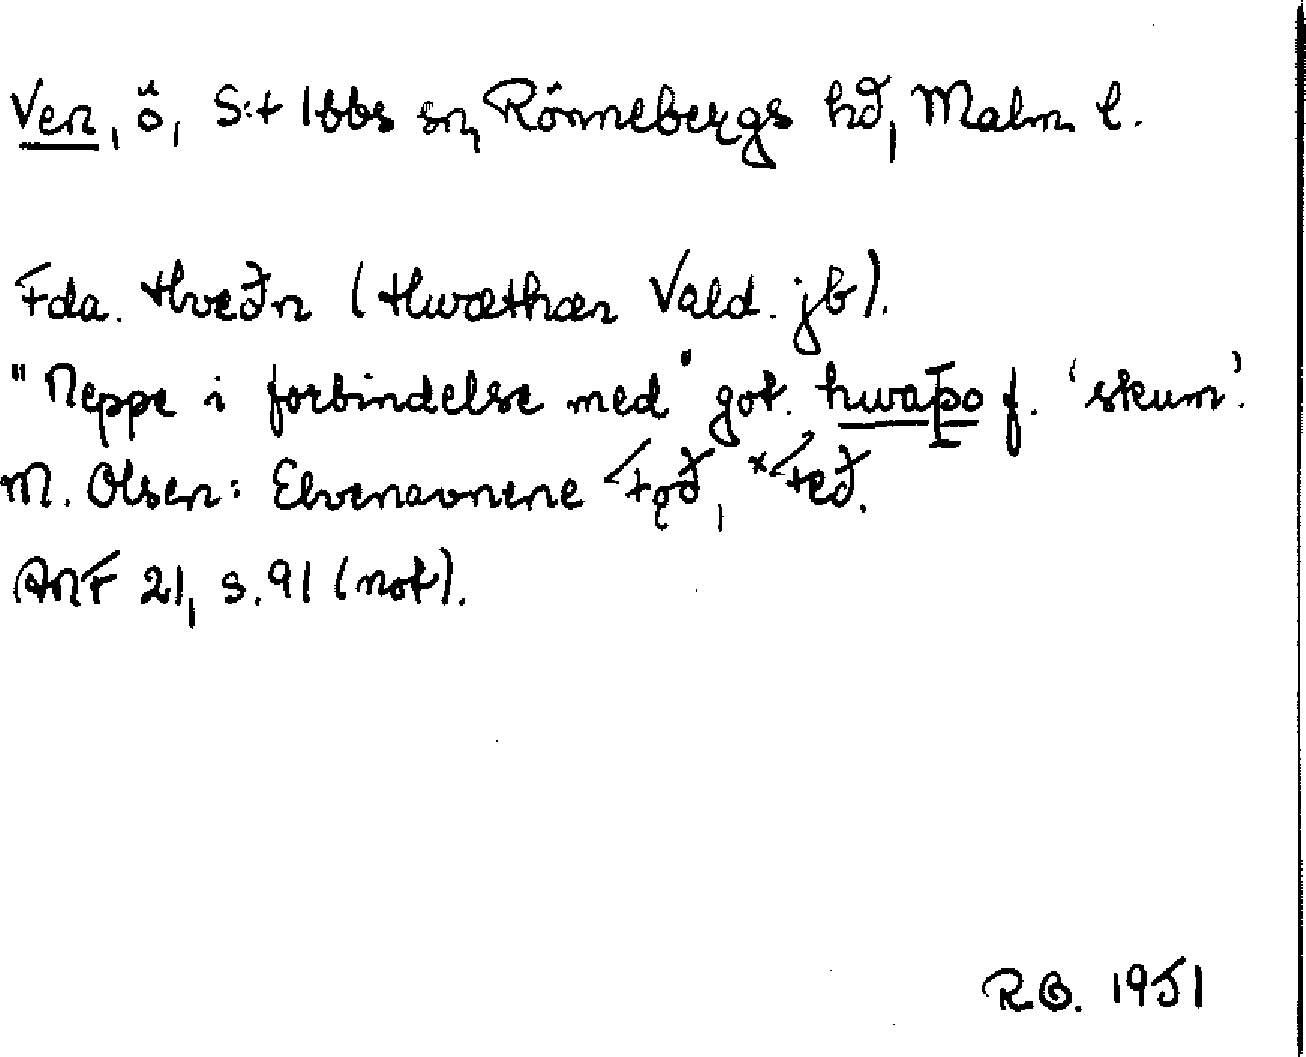 Ven, ö, S:t Ibbs sn, Rönnebergs hd, Malm. l.
Fda. Hveðn (Hwæthæn Vald. jb).
"Neppe i forbindelse med" got. hwaþo f. 'skum'.
M. Olsen: Elvenavnene Fǫð, *Feð.
ANF 21, s. 91 (not).
R.B. 1951